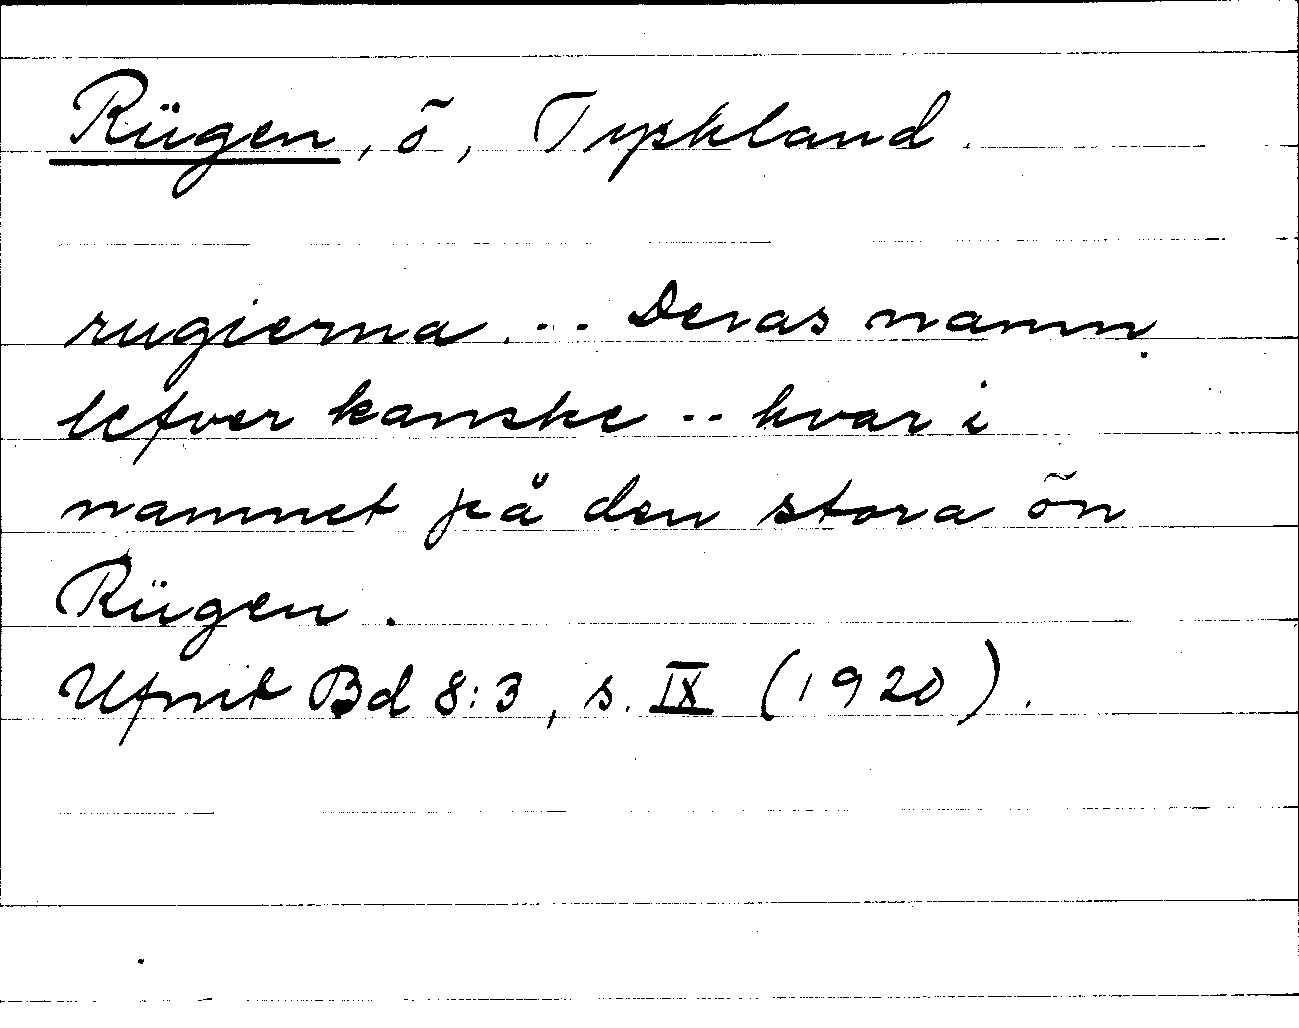 Rügen, ö, Tyskland.
rugierna ... Deras namn
lefver kanske .. kvar i
namnet på den stora ön
Rügen.
Ufmit Bd 8:3, s. IX (1920).